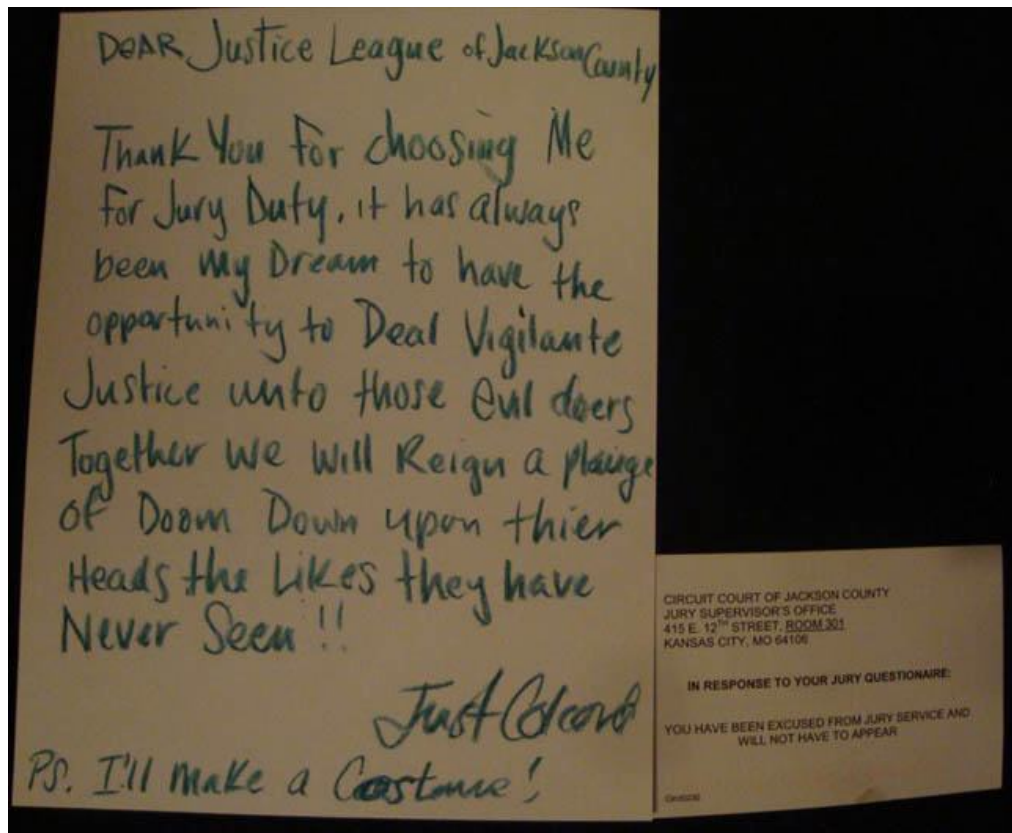 DEAR Justice League of Jackson County
Thank You for choosing Me
for Jury Duty, it has always
been my Dream to have the
opportunity to Deal Vigilante
Justice unto those evil doers
Together we will Reign a plauge
of Doom Down upon thier
Heads the Likes they have
Never Seen!!
Just
Ps. I'll make a Costume!
CIRCUIT COURT OF JACKSON COUNTY
JURY SUPERVISOR'S OFFICE
415 E. 12TH STREET, ROOM 301
KANSAS CITY, MO 64106
IN RESPONSE TO YOUR JURY QUESTIONAIRE:
YOU HAVE BEEN EXCUSED FROM JURY SERVICE AND
WILL NOT HAVE TO APPEAR